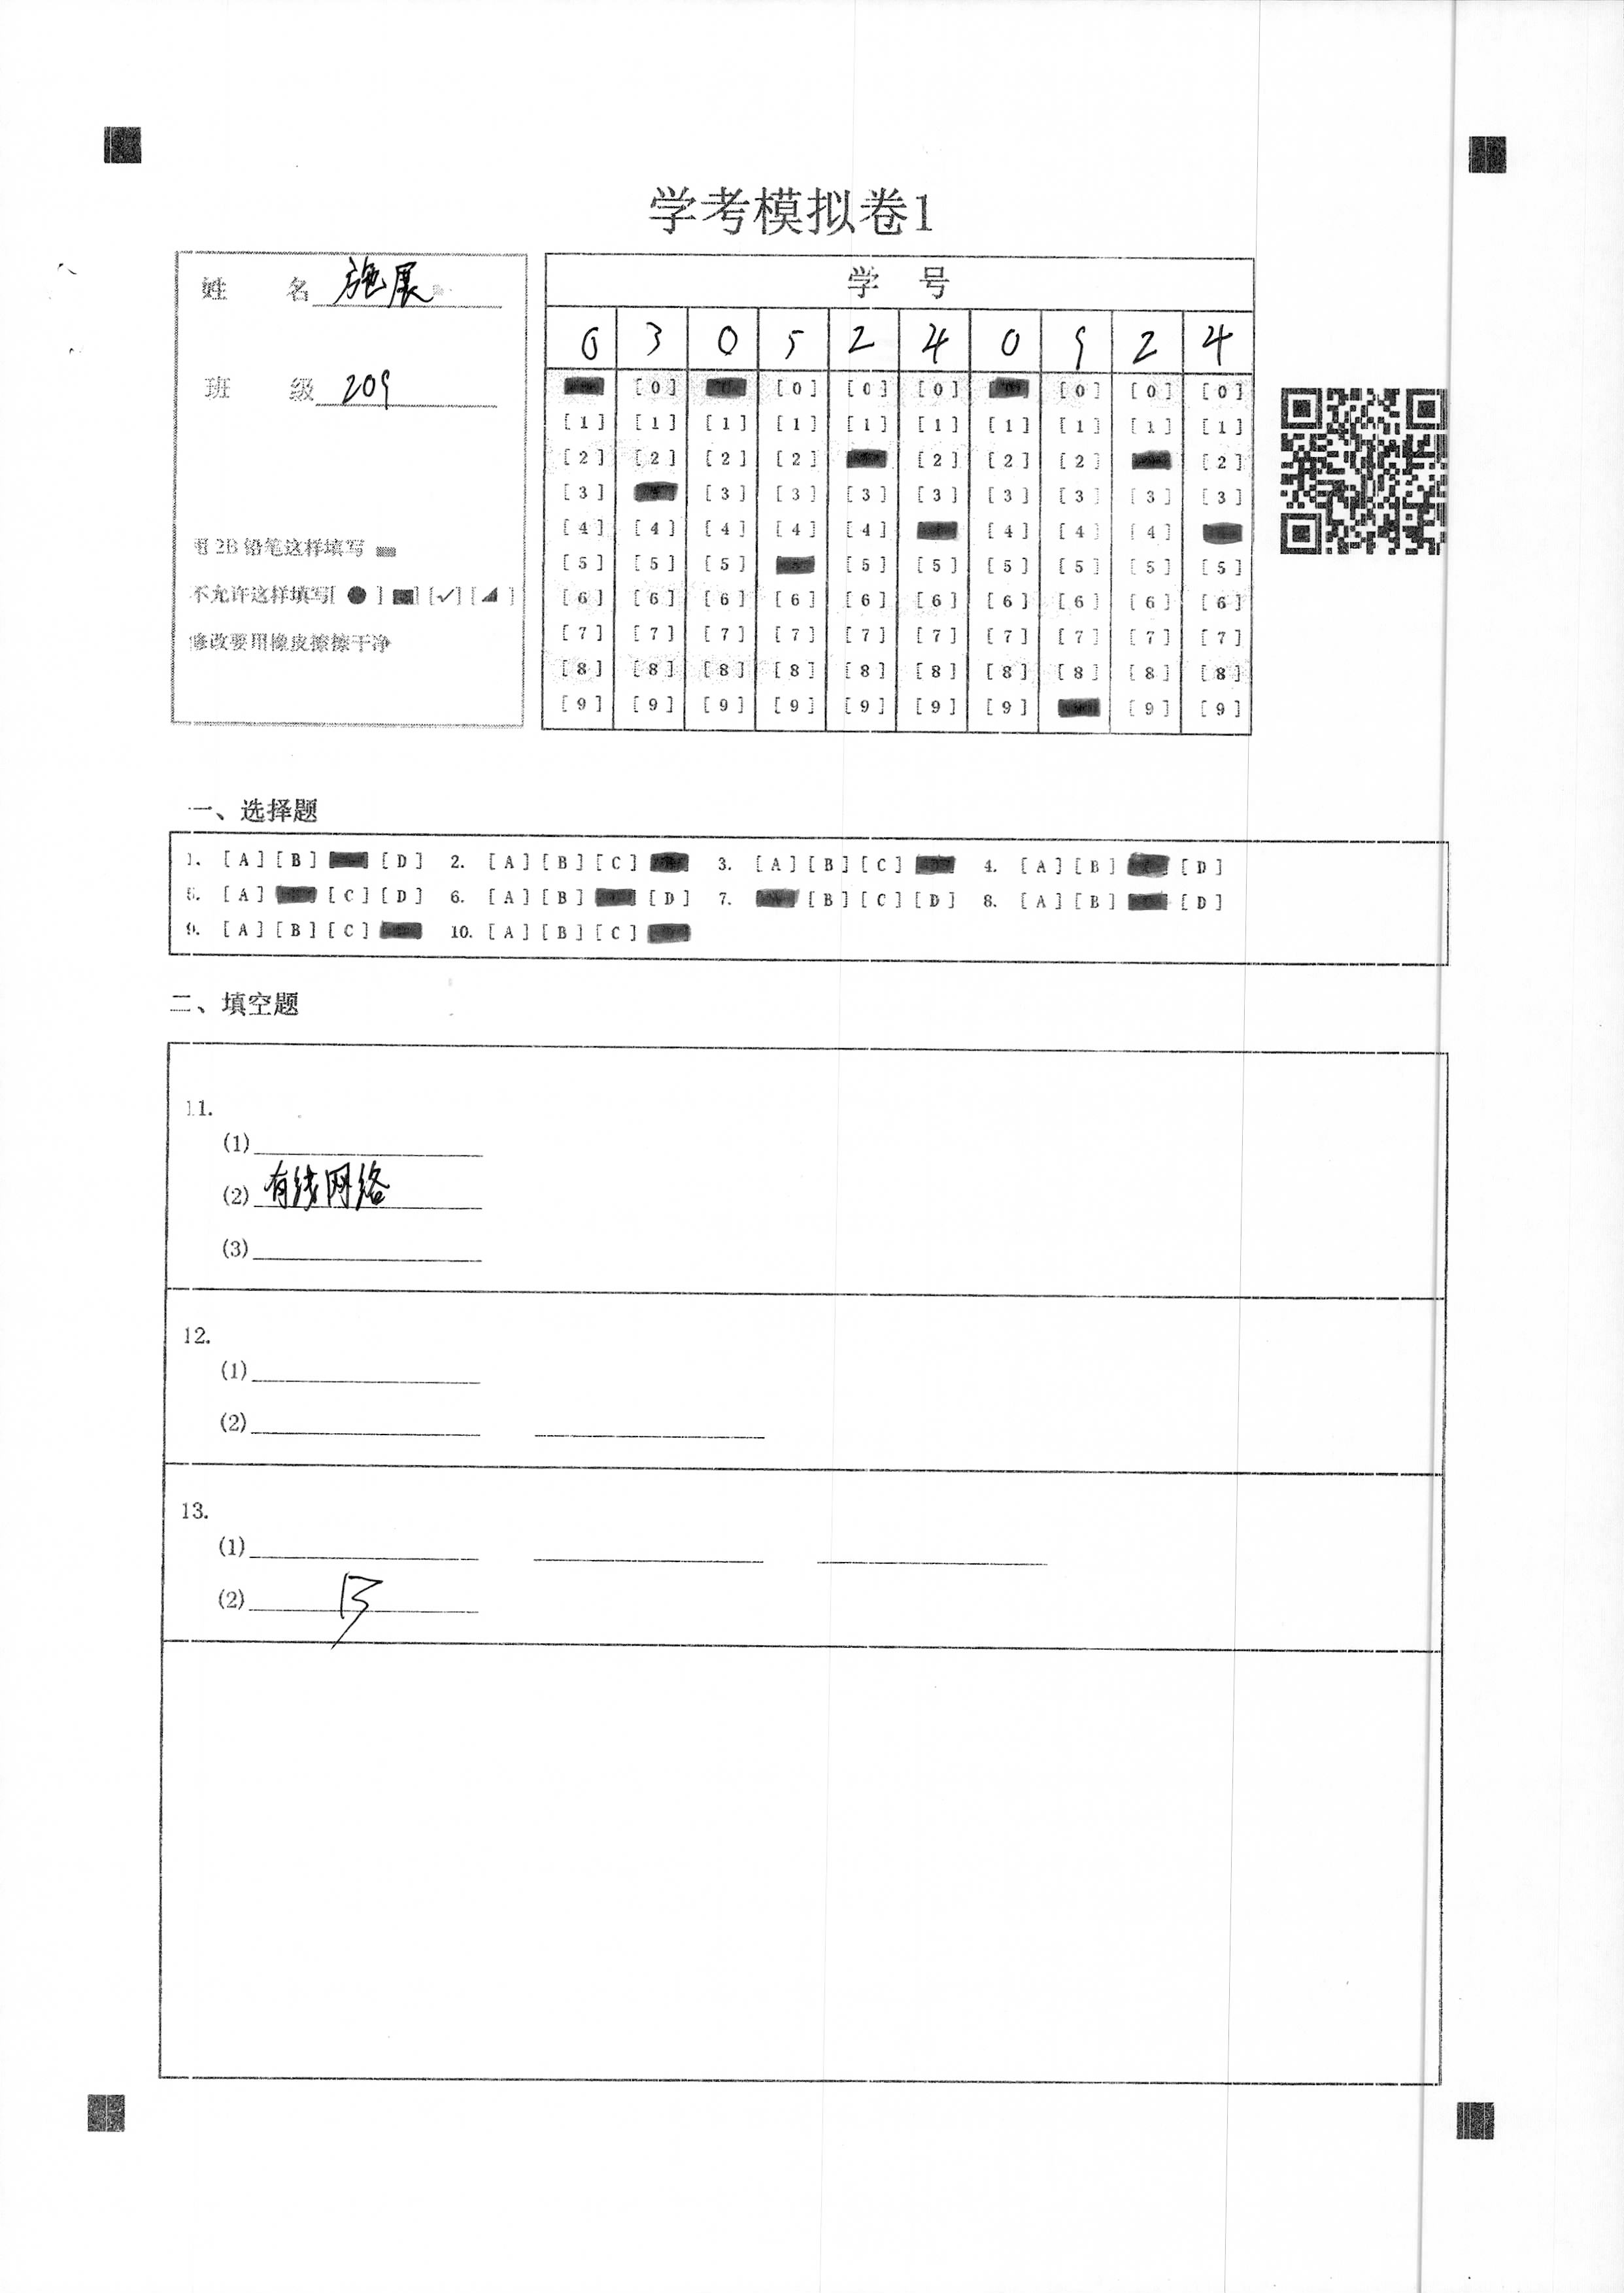 学考模拟卷1
姓 名 施展
班 级 209
用 2B 铅笔这样填写
不允许这样填写[ ● ] [✓] [ ]
修改要用橡皮擦擦干净
学 号
0 3 0 5 2 4 0 9 2 4
[0] [0] [0] [0] [0] [0] [0]
[1] [1] [1] [1] [1] [1] [1] [1] [1] [1]
[2] [2] [2] [2] [2] [2] [2] [2]
[3] [3] [3] [3] [3] [3] [3] [3] [3]
[4] [4] [4] [4] [4] [4] [4] [4]
[5] [5] [5] [5] [5] [5] [5] [5] [5]
[6] [6] [6] [6] [6] [6] [6] [6] [6] [6]
[7] [7] [7] [7] [7] [7] [7] [7] [7] [7]
[8] [8] [8] [8] [8] [8] [8] [8] [8] [8]
[9] [9] [9] [9] [9] [9] [9] [9] [9]
一、选择题
1. [A] [B] [D] 2. [A] [B] [C] 3. [A] [B] [C] 4. [A] [B] [D]
5. [A] [C] [D] 6. [A] [B] [D] 7. [B] [C] [D] 8. [A] [B] [D]
9. [A] [B] [C] 10. [A] [B] [C]
二、填空题
11.
(1)
(2) 有线网络
(3)
12.
(1)
(2)
13.
(1)
(2) B